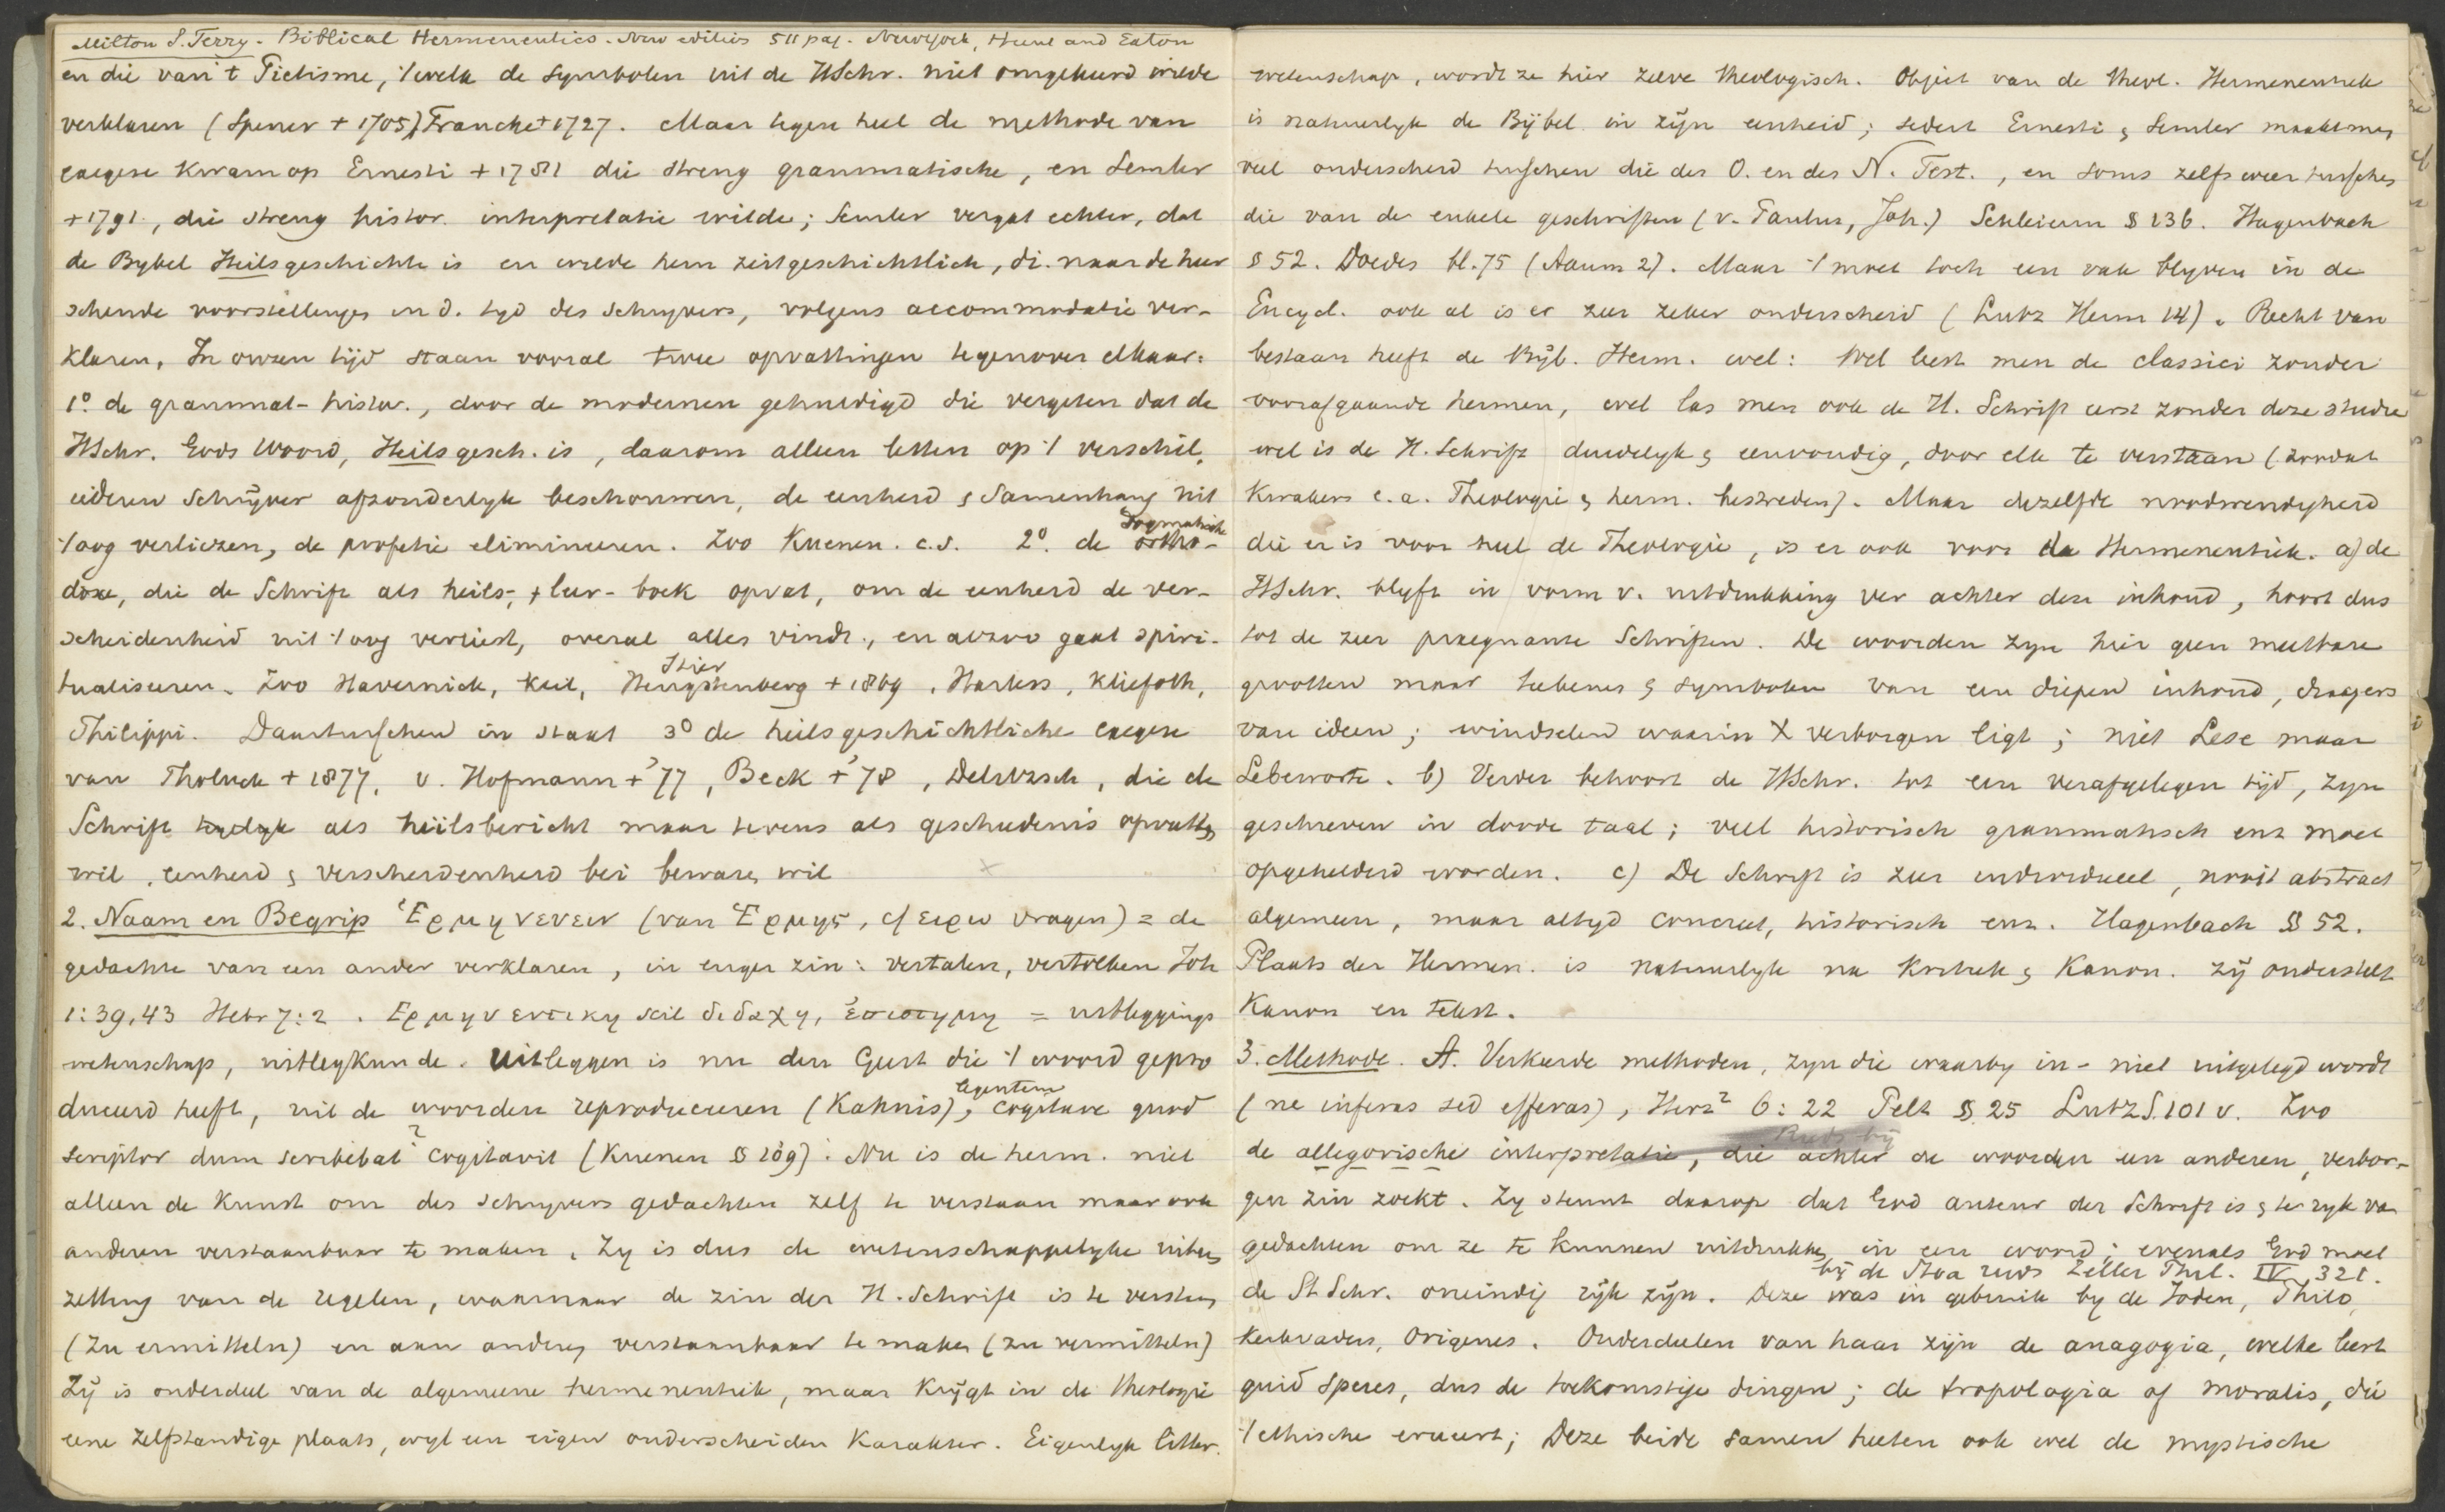 Milton S. Terry. Biblical Hermeneutics. New edition 511 pag. New York, Hunt and Eaton
en die van 't Pietisme, 't welk de symbolen uit de HSchr. niet omgekeerd wilde
verklaren (Spener + 1705), Francke + 1727. Maar tegen heel de methode van
exegese kwam op Ernesti + 1781 die streng grammatische, en Semler
+ 1791, die streng histor. interpretatie wilde; Semler vergat echter, dat
de Bybel Heilsgeschichte is en wilde hem zeitgeschichtlich, di. naar de heer
schende voorstellingen in d. tyd des schryvers, volgens accommodatie ver-
klaren. In onzen tijd staan vooral twee opvattingen tegenover elkaar:
1º. de grammat-histor., door de modernen gehuldigd die vergeten dat de
HSchr. Gods Woord, Heilsgesch. is, daarom alleen letten op 't verschil,
iederen Schrijver afzonderlyk beschouwen, de eenheid & Samenhang uit
't oog verliezen, de profetie elimineeren. Zoo Kuenen. c.s. 2º. de dogmatische ortho-
doxe, die de Schrift als heils-, + leer-boek opvat, om de eenheid de ver-
scheidenheid uit 't oog verliest, overal alles vindt., en alzoo gaat spiri-
tualiseeren. Zoo Havernick, Keil, Stier Hengstenberg + 1869, Harless, Kliefoth,
Philippi. Daartusschen in staat 3º de heilsgeschichtliche exegese
van Tholuck + 1877, v. Hofmann + '77, Beck + '78, Delitzsch, die de
Schrift als heilsbericht maar tevens als geschiedenis opvatten
wil, eenheid & verscheidenheid bei bewaren wil
2. Naam en Begrip Ἑρμηνευειν (van Ἑρμης, cf ειρω vragen) = de
gedachte van een ander verklaren, in enger zin: vertalen, vertolken Joh
1:39,43 Hebr 7:2. Ερμηνευτικη scil διδαχη, ἐπιστημη = uitleggings
wetenschap, uitlegkunde. Uitleggen is nu den Geest die 't woord gepro
duceerd heeft, uit de woorden reproduceeren (Kahnis), legentem cogitare quod
scriptor dum scribebat cogitavit (Kuenen § 109). Nu is de herm. niet
alleen de kunst om des schryvers gedachten zelf te verstaan maar ook
anderen verstaanbaar te maken. Zy is dus de wetenschappelyke uiteen
zetting van de regelen, waarnaar de zin der H. Schrift is te verstaan
(zu ermitteln) en aan anderen verstaanbaar te maken (zu vermitteln)
Zij is onderdeel van de algemeene hermeneutiek, maar krijgt in de theologie
eene zelfstandige plaats, wyl een eigen onderscheiden karakter. Eigenlyk litter.
wetenschap, wordt ze hier zelve theologisch. Object van de theol. Hermeneutiek
is natuurlyk de Bijbel in zijn eenheid; sedert Ernesti & Semler maakt men
veel onderscheid tusschen die des O. en des N. Test., en soms zelfs weer tusschen
die van de enkele geschriften (v. Paulus, Joh.) Schleierm § 136. Hagenbach
§ 52. Doedes bl. 75 (Aanm 2). Maar 't moet toch een vak blyven in de
Encycl. ook al is er zeer zeker onderscheid (Lutz Herm 14). Recht van
bestaan heeft de Bijb. Herm. wel: Wel leest men de classici zonder
voorafgaande hermen, wel las men ook de H. Schrift eerst zonder deze studie
wel is de H. Schrift duidelyk & eenvoudig, door elk te verstaan (zoodat
Kwakers e.a. Theologie & herm. bestreden). Maar dezelfde noodwendigheid
die er is voor heel de Theologie, is er ook voor de Hermeneutiek. a) de
HSchr. blyft in vorm v. uitdrukking ver achter den inhoud, hoort dus
tot de zeer praegnante Schriften. De woorden zyn hier geen meetbare
grootten maar teekenen & symbolen van een diepen inhoud, dragers
van ideen; windselen waarin X verborgen ligt; niet Lese maar
Lebeworte. b) Verder behoort de HSchr. tot een verafgelegen tijd, zyn
geschreven in doode taal; veel historisch grammatisch enz moet
opgehelderd worden. c) De Schrift is zeer individueel, nooit abstract
algemeen, maar altyd concreet, historisch enz. Hagenbach § 52.
Plaats der Hermen. is natuurlyk na Kritiek & Kanon. Zij onderstelt
Kanon en tekst.
3. Methode. A. Verkeerde methoden, zyn die waarby in- niet uitgelegd wordt
(ne inferas sed efferas), Herz² 6:22 Pelt § 25 Lutz S. 101 v. Zoo
de allegorische interpretatie, die achter de woorden een anderen, verbor-
gen zin zoekt. Zy steunt daarop dat God auteur der Schrift is & te ryk van
gedachten om ze te kunnen uitdrukken in een woord; evenals God moet
bij de Stoa reeds Zeller Phil. IV, 321.
de H Schr. oneindig rijk zijn. Deze was in gebruik by de Joden, Philo,
Kerkvaders, Origenes. Onderdeelen van haar zijn de anagogia, welke leert
quid speres, dus de toekomstige dingen; de tropologia of moralis, die
't ethische erueert; Deze beide samen heeten ook wel de mystische